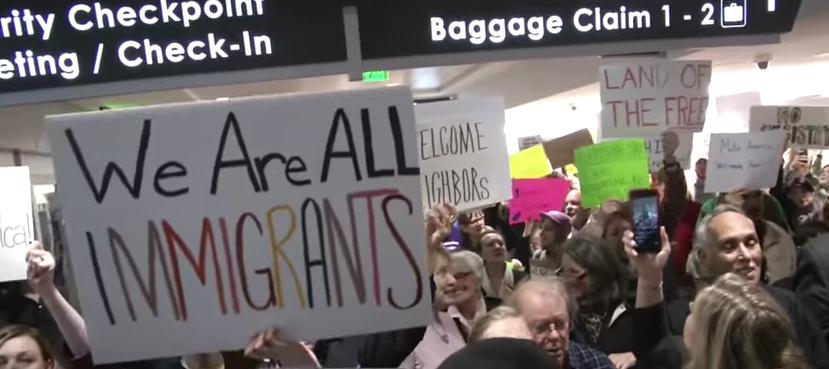 rity Checkpoint
eting / Check-In
Baggage Claim 1 - 2
We Are ALL
IMMIGRANTS
ELCOME
IGHBORS
LAND OF
THE FREE
Make America
NO